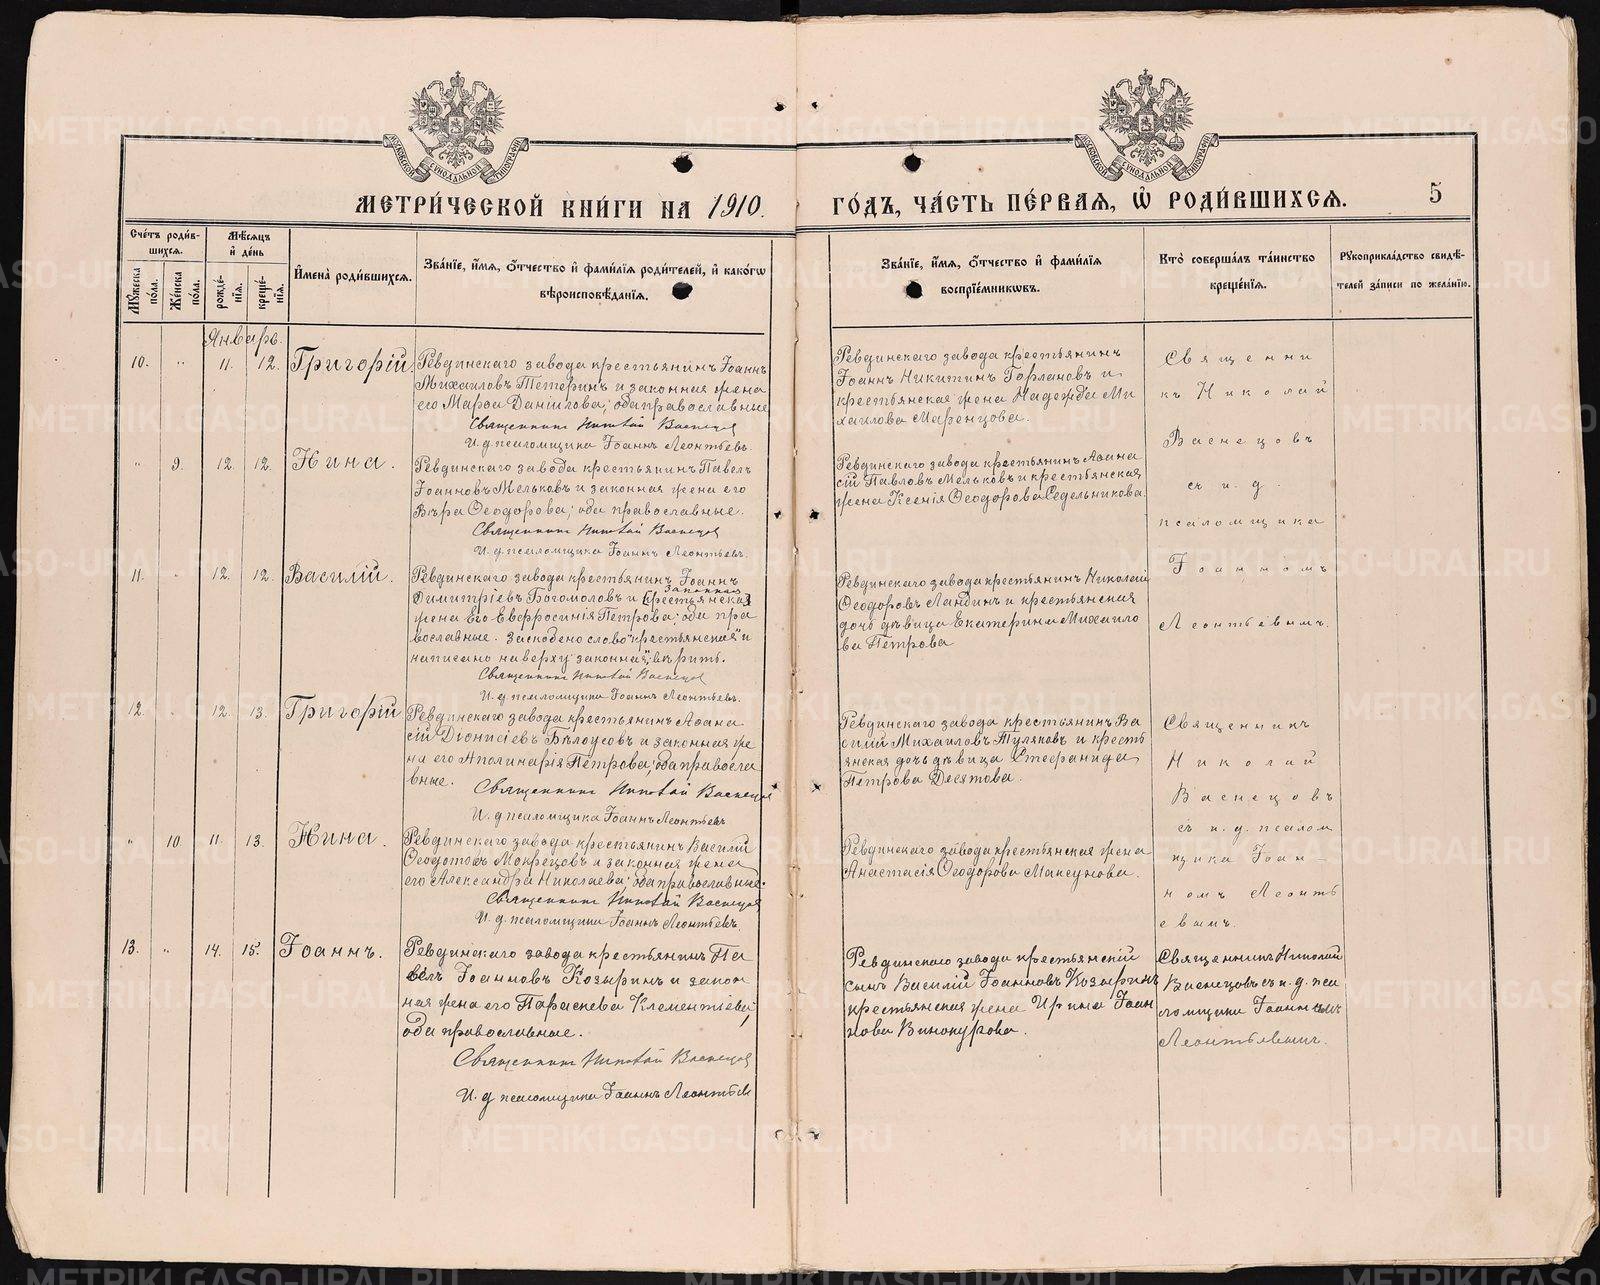 МОСКОВСКОЙ СѴНОДАЛЬНОЙ ТИПОГРАФІИ
МОСКОВСКОЙ СѴНОДАЛЬНОЙ ТИПОГРАФІИ
МЕТРИ́ЧЕСКОЙ КНИ́ГИ НА 1910.
ГО́ДЪ, ЧА́СТЬ ПЕ́РВАЯ, Ѽ РОДИ́ВШИХСЯ. 5
Сче́тъ роди́в-
шихся.
Мѣ́сяцъ
и҆ де́нь
Му́жеска по́ла.
Же́нска по́ла.
рожде́-
нія.
креще́-
нія.
И҆мена̀ роди́вшихся.
Зва́ніе, и҆́мя, ѻ҆́тчество и҆ фами́лія роди́телей, и҆ како́гѡ
вѣроисповѣ́данія.
Зва́ніе, и҆́мя, ѻ҆́тчество и҆ фами́лія
воспріе́мникѡвъ.
Кто̀ соверша́лъ та́инство
креще́нія.
Рукоприкла́дство свидѣ́-
телей за́писи по жела́нію.
Январь.
10. " 11. 12. Григорій.
Ревдинскаго завода крестьянинъ Іоаннъ
Михаиловъ Тетеринъ и законная жена
его Марѳа Даніилова; оба православные
Священникъ Николай Васнецов
И. д. псаломщика Іоаннъ Леонтьевъ.
Ревдинскаго завода крестьянинъ
Іоаннъ Никитинъ Горлановъ и
крестьянская жена Надежда Ми
хаилова Маренцова.
Священни
къ Николай
Васнецовъ
съ и. д.
псаломщика
Іоанномъ
Леонтьевымъ.
" 9. 12. 12. Нина.
Ревдинскаго завода крестьянинъ Павелъ
Іоанновъ Мельковъ и законная жена его
Вѣра Ѳеодорова; оба православные.
Священникъ Николай Васнецов
И. д. псаломщика Іоаннъ Леонтьевъ.
Ревдинскаго завода крестьянинъ Аѳана
сій Павловъ Мельковъ и крестьянская
жена Ксенія Ѳеодорова Седельникова.
11. " 12. 12. Василій.
Ревдинскаго завода крестьянинъ Іоаннъ
законная
Димитріевъ Богомоловъ и [крестьянская]
жена его Евфросинія Петрова; оба пра
вославные. Заскобено слово "крестьянская" и
написано наверху "законная", вѣрить.
Священникъ Николай Васнецов
И. д. псаломщика Іоаннъ Леонтьевъ.
Ревдинскаго завода крестьянинъ Николай
Ѳеодоровъ Ландинъ и крестьянская
дочь дѣвица Екатерина Михаило
ва Петрова
12. " 12. 13. Григорій
Ревдинскаго завода крестьянинъ Аѳана
сій Діонисіевъ Бѣлоусовъ и законная же
на его Аполинарія Петрова; оба правосла
вные.
Священникъ Николай Васнецов
И. д. псаломщика Іоаннъ Леонтьевъ
Ревдинскаго завода крестьянинъ Ва
силій Михаиловъ Туляковъ и кресть
янская дочь дѣвица Стефанида
Петрова Десятова.
Священникъ
Николай
Васнецовъ
съ и. д. псалом
щика Іоан-
номъ Леонть
евымъ.
" 10. 11. 13. Нина.
Ревдинскаго завода крестьянинъ Василій
Ѳеодотовъ Мокрецовъ и законная жена
его Александра Николаева; оба православные.
Священникъ Николай Васнецов
И. д. псаломщика Іоаннъ Леонтьевъ.
Ревдинскаго завода крестьянская жена
Анастасія Ѳеодорова Максунова.
13. " 14. 15. Іоаннъ.
Ревдинскаго завода крестьянинъ Па
велъ Іоанновъ Козыринъ и закон
ная жена его Параскева Клементіева;
оба православные.
Священникъ Николай Васнецов
И. д. псаломщика Іоаннъ Леонтьев
Ревдинскаго завода крестьянскій
сынъ Василій Іоанновъ Козыринъ
крестьянская жена Ирина Іоан
нова Винокурова.
Священникъ Николай
Васнецовъ съ и. д. пса
ломщика Іоанномъ
Леонтьевымъ.
METRIKI.GASO-URAL.RU